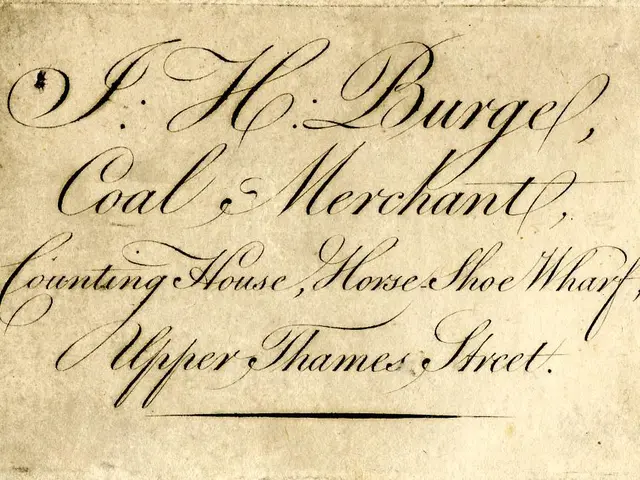 J: H: Burge,
Coal Merchant,
Counting House, Horse-Shoe Wharf,
Upper Thames Street.